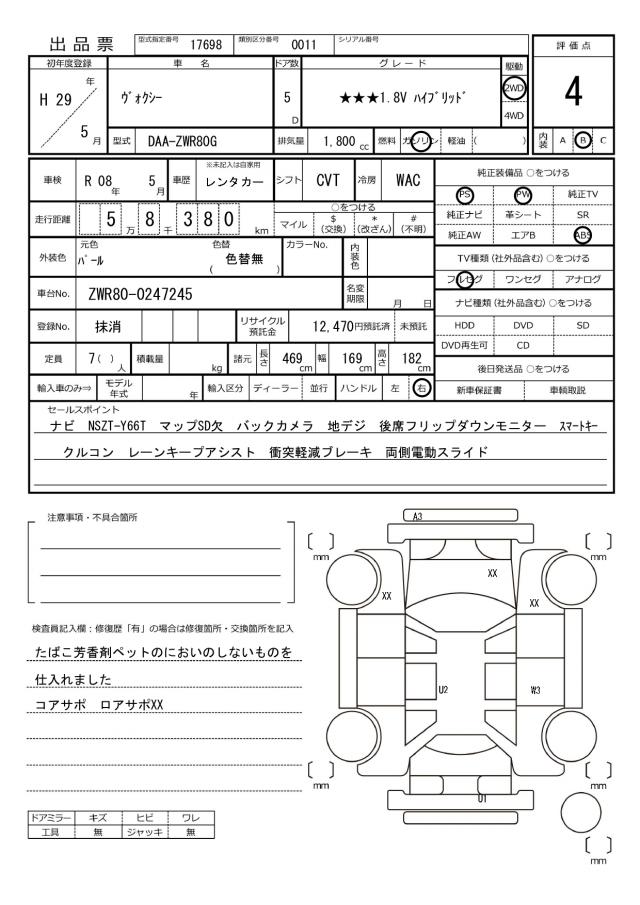 出品票
型式指定番号 17698 類別区分番号 0011 シリアル番号
評価点
4
初年度登録 車 名 ドア数 グレード 駆動
H 29 年 5 月
ヴォクシー 5 D ★★★1.8V ハイブリッド 2WD 4WD
型式 DAA-ZWR80G 排気量 1,800 cc 燃料 ガソリン 軽油 ( ) 内装 A B C
車検 R 08 年 5 月 車歴 ※未記入は自家用 レンタカー シフト CVT 冷房 WAC
純正装備品 ○をつける
PS PW 純正TV
純正ナビ 革シート SR
純正AW エアB ABS
走行距離 5 万 8 千 3 8 0 km
○をつける
マイル $(交換) *(改ざん) #(不明)
外装色 元色 パール 色替 色替無 ( ) カラーNo. 内装色
TV種類 (社外品含む) ○をつける
フルセグ ワンセグ アナログ
車台No. ZWR80-0247245 名変期限 月 日
ナビ種類 (社外品含む) ○をつける
HDD DVD SD
DVD再生可 CD
登録No. 抹消 リサイクル預託金 12,470円預託済 未預託
定員 7( )人 積載量 kg 諸元 長さ 469 cm 幅 169 cm 高さ 182 cm
後日発送品 ○をつける
新車保証書 車輌取説
輸入車のみ⇒ モデル年式 年 輸入区分 ディーラー 並行 ハンドル 左 右
セールスポイント
ナビ NSZT-Y66T マップSD欠 バックカメラ 地デジ 後席フリップダウンモニター スマートキー
クルコン レーンキープアシスト 衝突軽減ブレーキ 両側電動スライド
注意事項・不具合箇所
検査員記入欄：修復歴「有」の場合は修復箇所・交換箇所を記入
たばこ芳香剤ペットのにおいのしないものを
仕入れました
コアサポ ロアサポXX
ドアミラー キズ ヒビ ワレ
工具 無 ジャッキ 無
A3
mm mm
XX
XX XX
U2 W3
mm mm
U1
mm